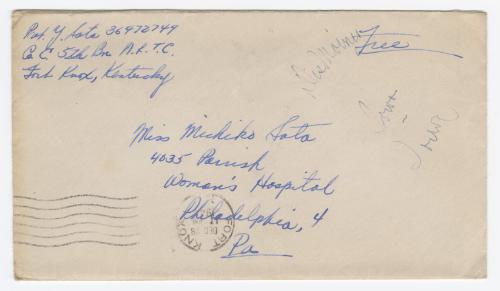 Pvt. Y. Sata 36972749
Co. C. 5th Bn. A.R.T.C.
Fort Knox, Kentucky
Free
Des Moines
Iowa
Miss Michiko Sata
4035 Parrish
Woman's Hospital
Philadelphia, 4
Pa
FORT KNOX
DEC 28